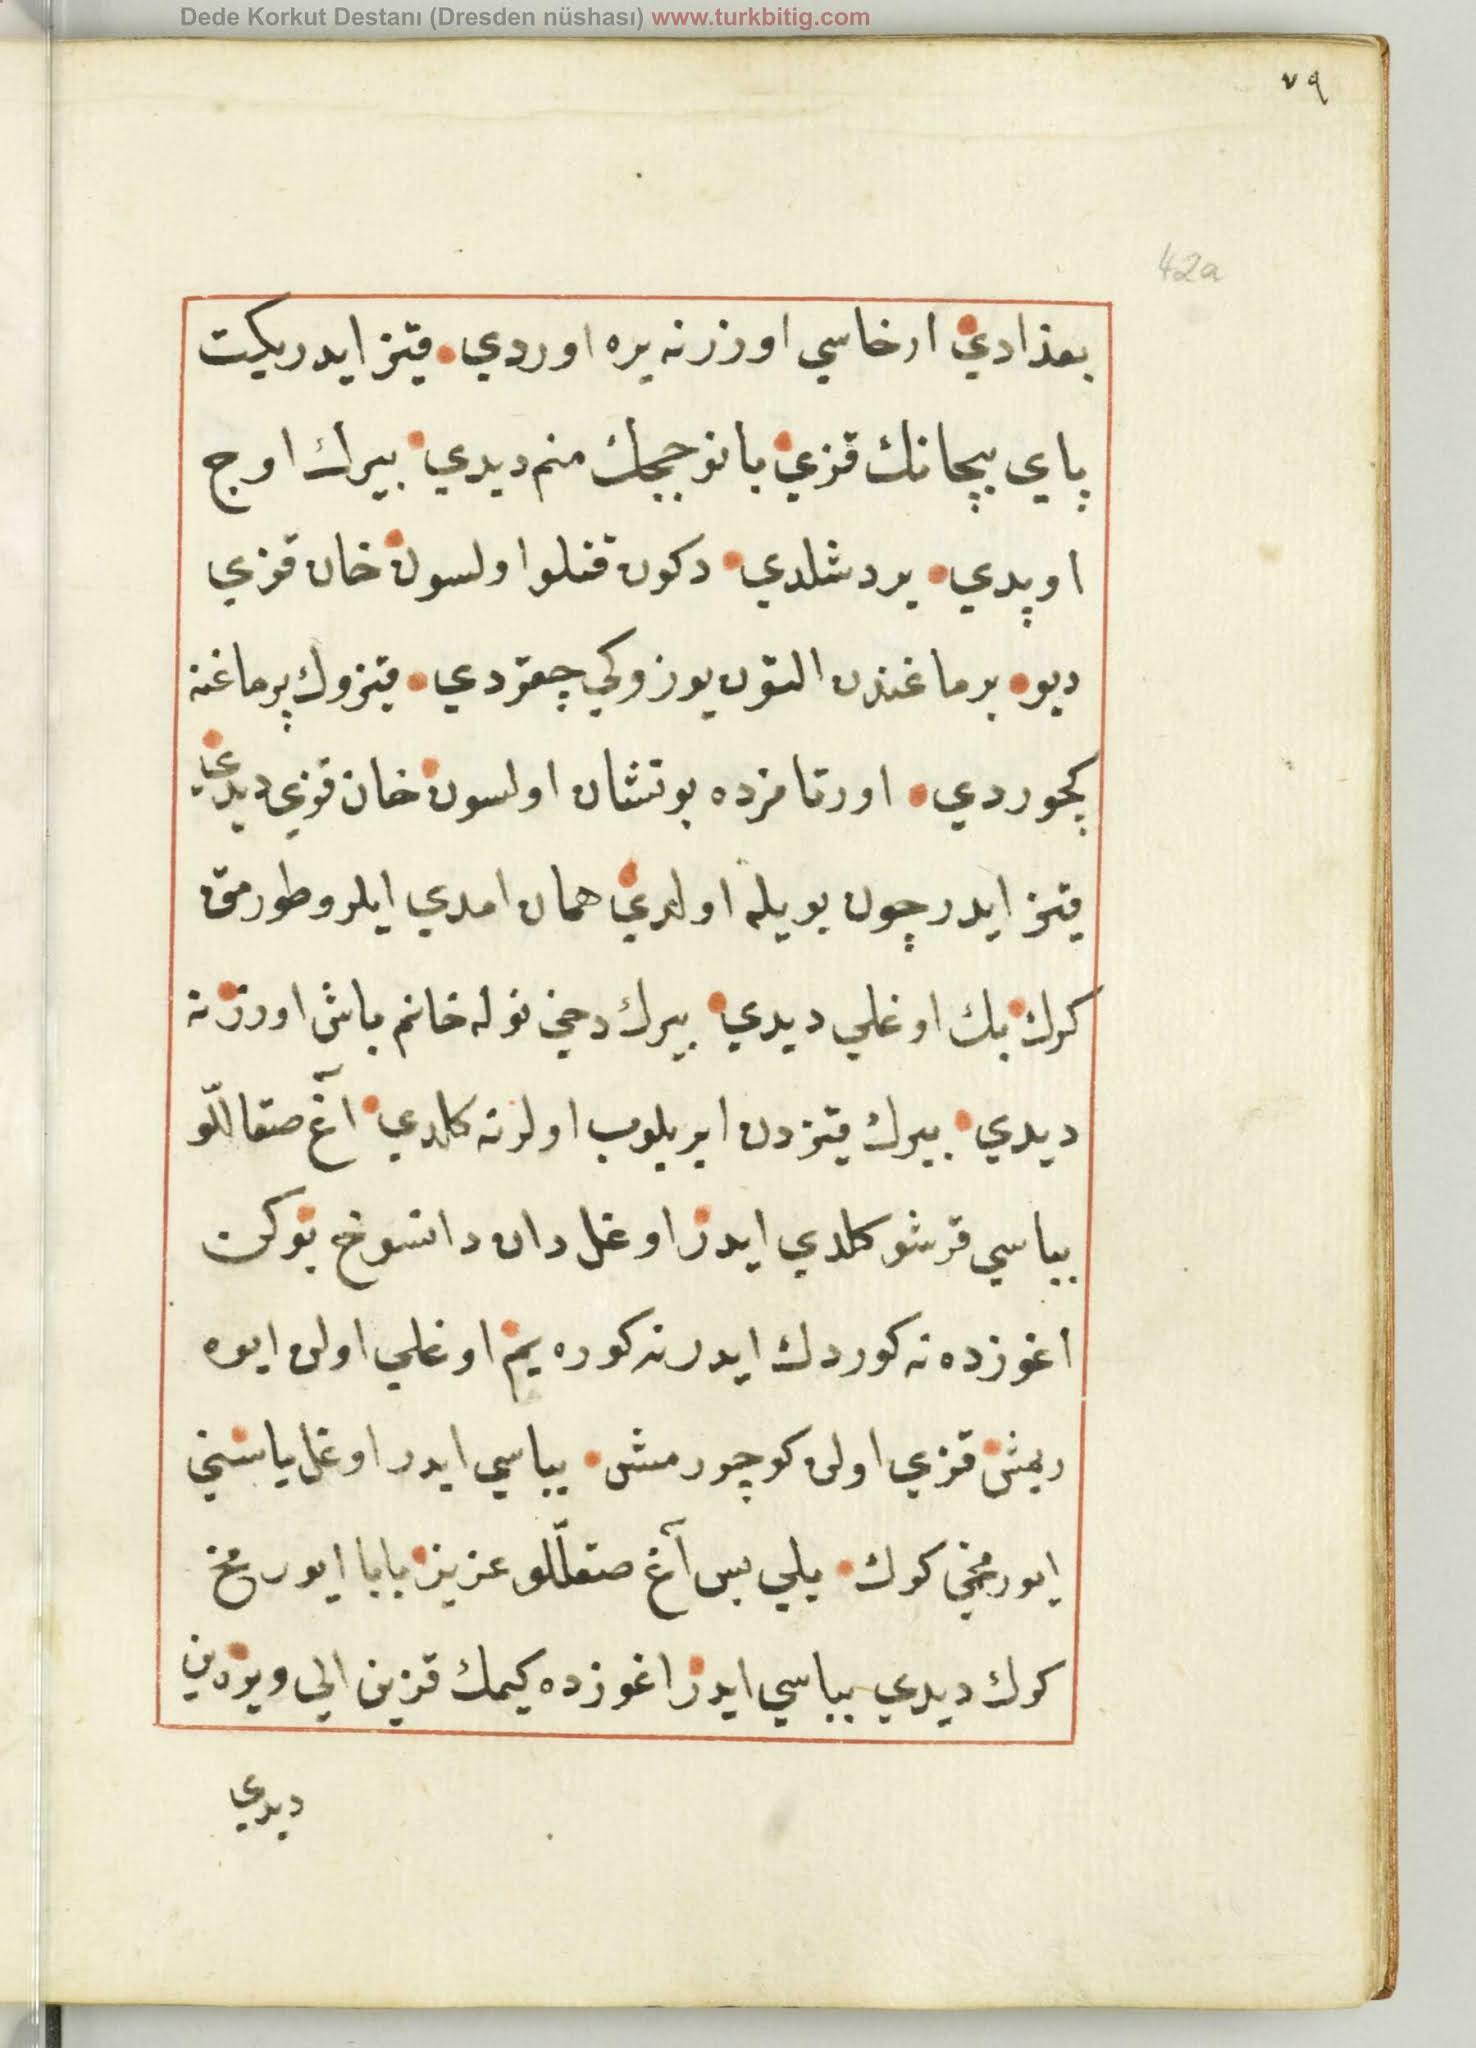 Dede Korkut Destanı (Dresden nüshası) www.turkbitig.com
٧٩
42a
بغذادي ارخاسي اوزرنه يره اوردي قيز ايدر يكيت
پاي بيچانك قزي بانو چيچك منم ديدي بيرك اوچ
اوپدي بر دشلدي دكون قتلو اولسون خان قزي
ديو برماغندن التون يوزوكي چقردي قيزوك پرماغنه
كچوردي اورتامزده بو نشان اولسون خان قزي ديدي
قيز ايدر چون بويله اولدي همان امدي ايلرو طورمق
كرك بك اوغلي ديدي بيرك دخي نوله خانم باش اوزرنه
ديدي بيرك قيزدن ايريلوب اولرنه كلدي آغ صقاللّو
بباسي قرشو كلدي ايدر اوغل دان دانسوخ بوكن
اغوزده نه كوردك ايدر نه كوره يم اوغلي اولن ايوه
رمش قزي اولن كوچورمش بباسي ايدر اوغل ياسني
ايورمخي كرك يلي بس آغ صقللّو عزيز بابا ايورمخ
كرك ديدي بباسي ايدر اغوزده كيمك قزين الي ويره ين
ديدي